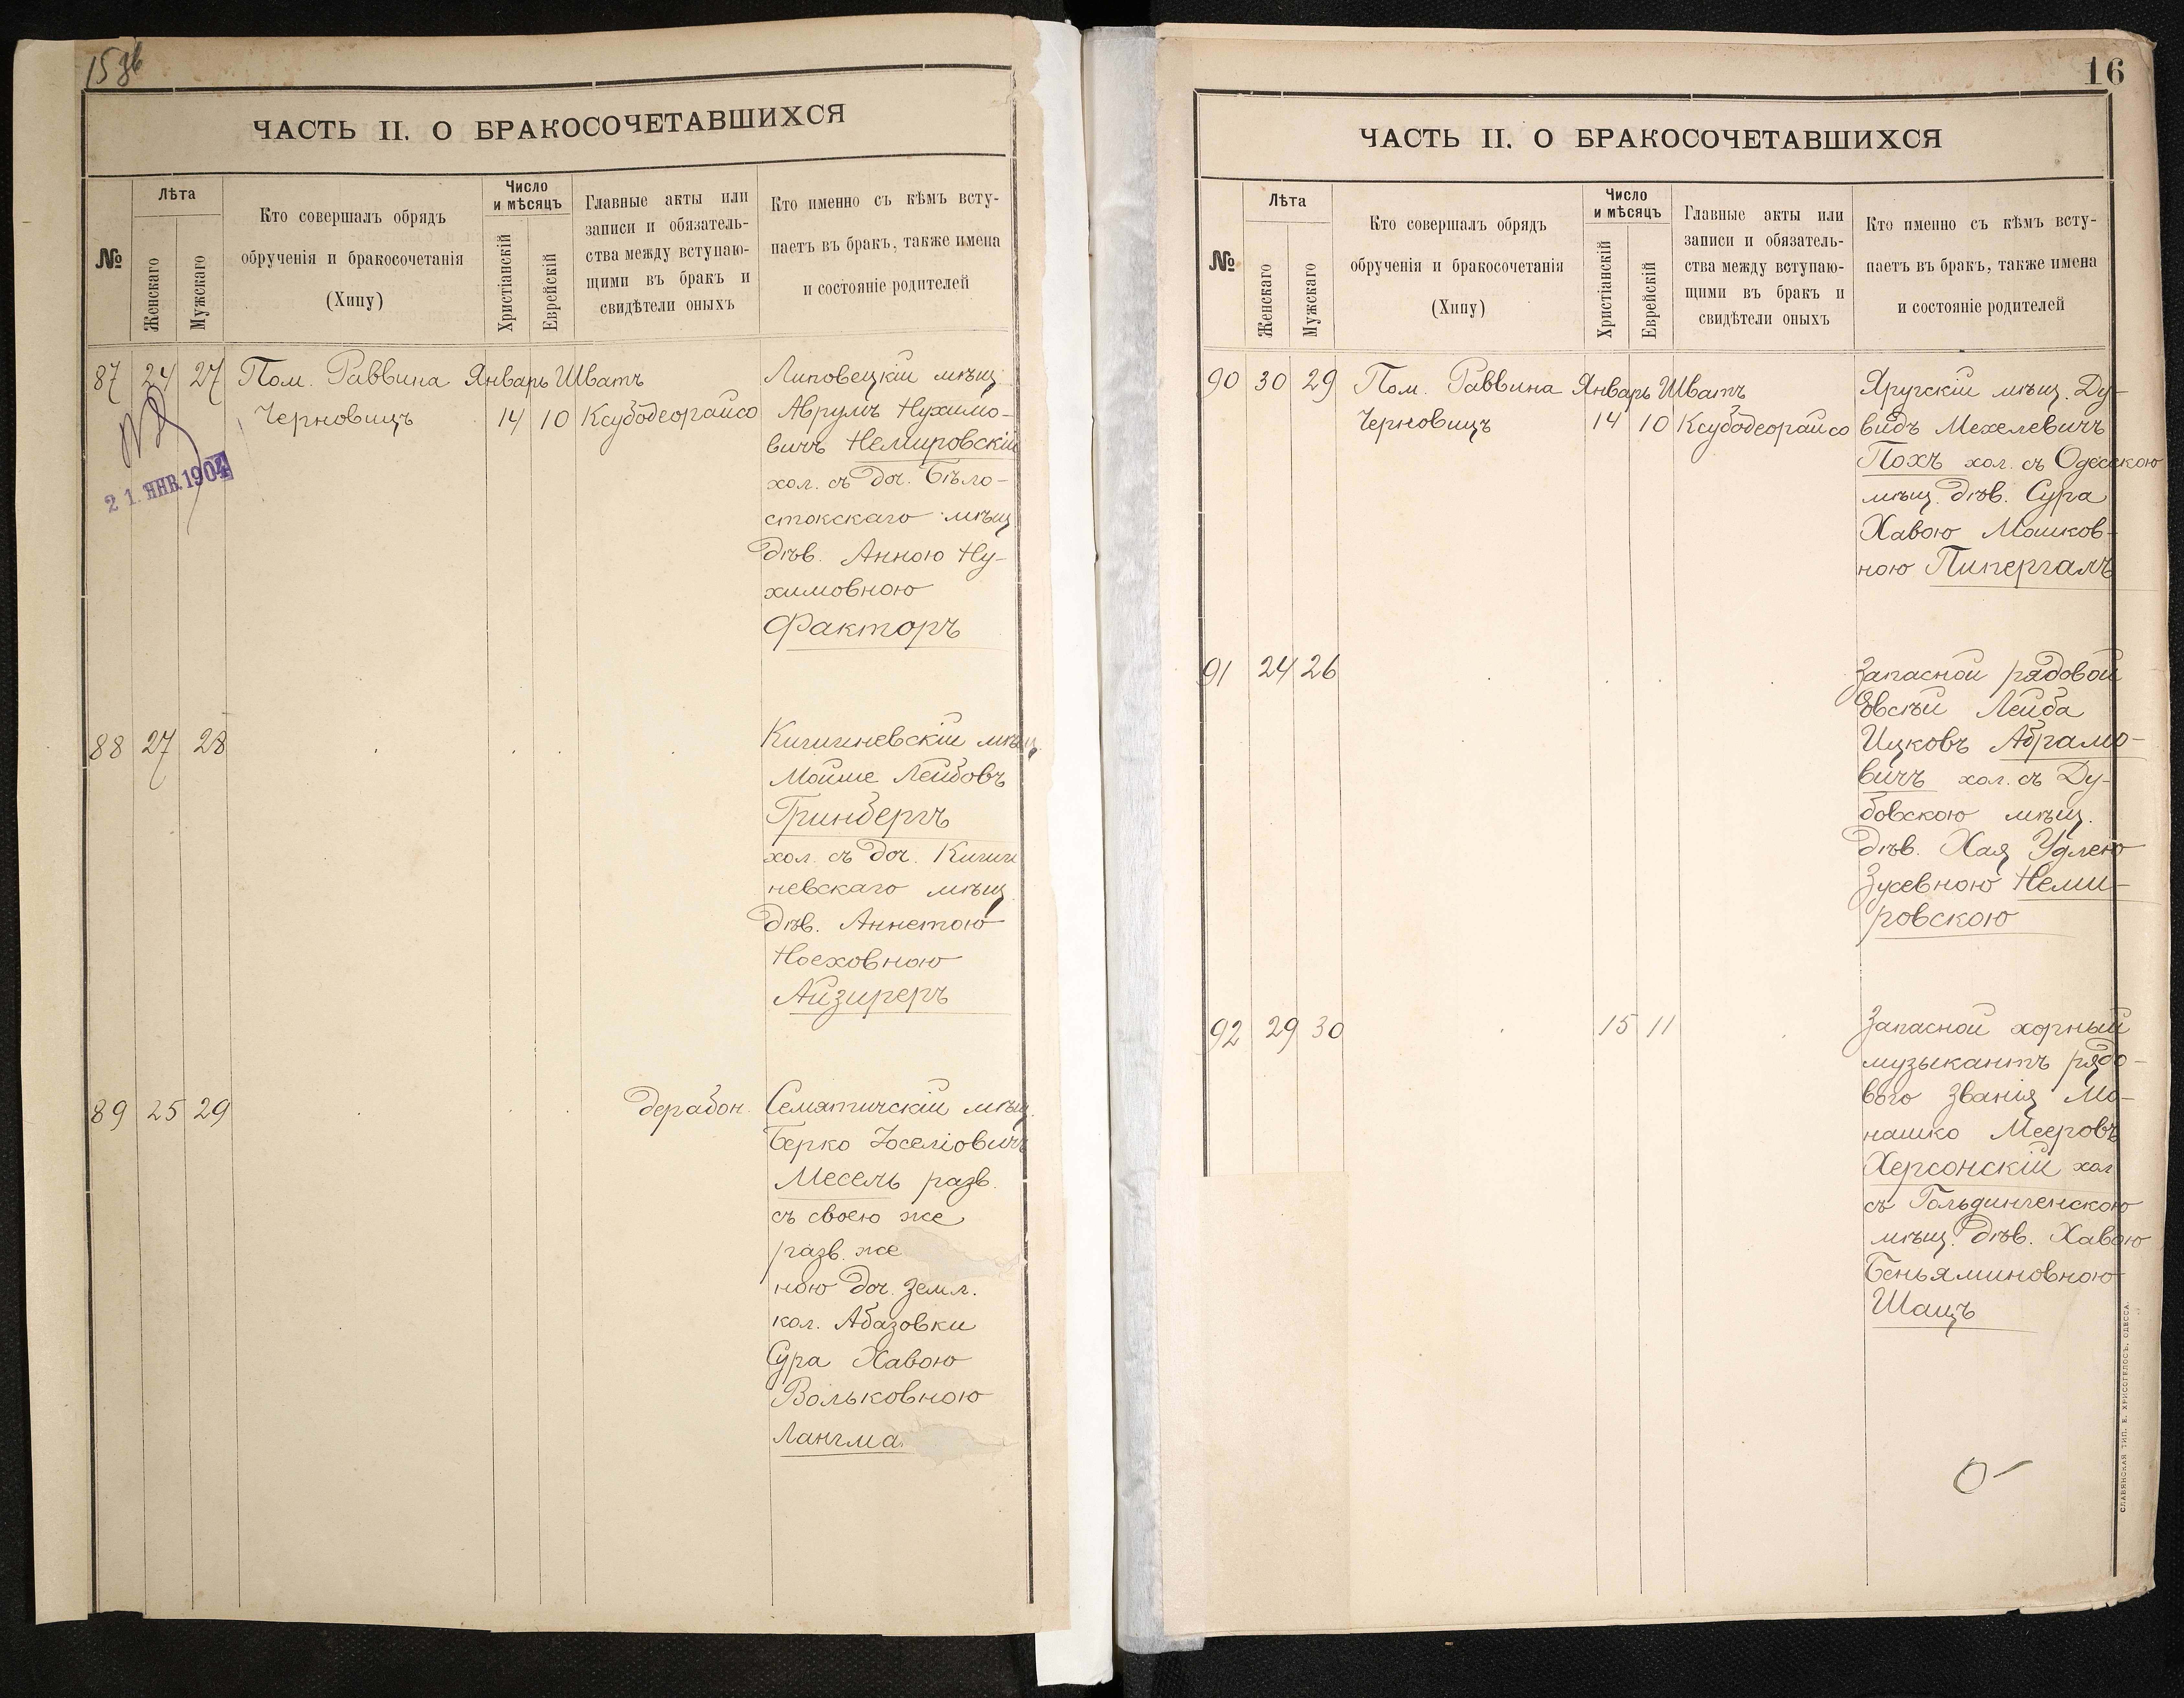 15 зв
ЧАСТЬ II. О БРАКОСОЧЕТАВШИХСЯ
№
Лѣта
Женскаго
Мужскаго
Кто совершалъ обрядъ
обрученія и бракосочетанія
(Хипу)
Число
и мѣсяцъ
Христіанскій
Еврейскій
Главные акты или
записи и обязатель-
ства между вступаю-
щими въ бракъ и
свидѣтели оныхъ
Кто именно съ кѣмъ всту-
паетъ въ бракъ, также имена
и состояніе родителей
87 24 27 Пом. Раввина Январь Шватъ
Черновицъ 14 10 Ксубодеорайсо
Липовецкій мѣщ.
Аврумъ Нухимо-
вичъ Немировскій
хол. съ доч. Бѣло-
стокскаго мѣщ.
дѣв. Анною Ну-
химовною
Факторъ
21. ЯНВ. 1904
88 27 28
Кишиневскій мѣщ.
Мойше Лейбовъ
Гринбергъ
хол. съ доч. Киши
невскаго мѣщ.
дѣв. Аннетою
Ноеховною
Айзиреръ
89 25 29 дерабон.
Семятичскій мѣщ.
Берко Іоселіовичъ
Месель разв.
съ своею же
разв. же
ною доч. земл.
кол. Абазовки
Сура Хавою
Вольковною
Лангма
16
ЧАСТЬ II. О БРАКОСОЧЕТАВШИХСЯ
№
Лѣта
Женскаго
Мужскаго
Кто совершалъ обрядъ
обрученія и бракосочетанія
(Хипу)
Число
и мѣсяцъ
Христіанскій
Еврейскій
Главные акты или
записи и обязатель-
ства между вступаю-
щими въ бракъ и
свидѣтели оныхъ
Кто именно съ кѣмъ всту-
паетъ въ бракъ, также имена
и состояніе родителей
90 30 29 Пом. Раввина Январь Шватъ
Черновицъ 14 10 Ксубодеорайсо
Яругскій мѣщ. Ду-
видъ Мехелевичъ
Похъ хол. съ Одесскою
мѣщ. дѣв. Сура
Хавою Мошков-
ною Пипергалъ
91 24 26
Запасной рядовой
Овсѣй Лейба
Ицковъ Абрамо-
вичъ хол. съ Ду-
бовскою мѣщ.
дѣв. Хая Удлею
Зусевною Неми-
ровскою
92 29 30 15 11
Запасной хорный
музыкантъ рядо-
вого званія Мо-
нашко Мееровъ
Херсонскій хол
съ Гольдингенскою
мѣщ. дѣв. Хавою
Беньяминовною
Шацъ
СЛАВЯНСКАЯ ТИП. Е. ХРИСОГЕЛОСЪ, ОДЕССА.